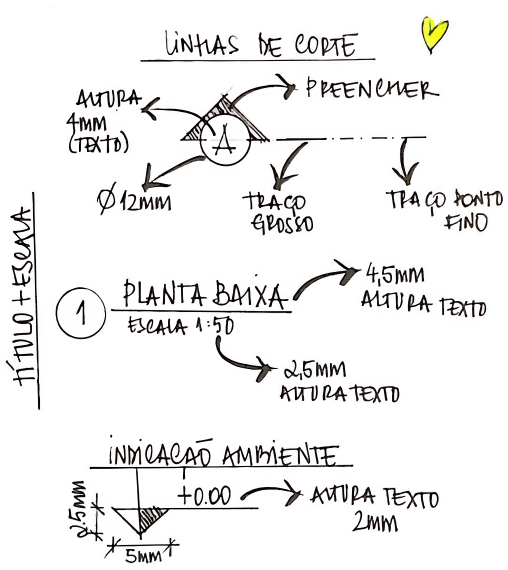 LINHAS DE CORTE
ALTURA
4mm
(TEXTO)
PREENCHER
A
Ø12mm
TRAÇO
GROSSO
TRAÇO PONTO
FINO
TÍTULO + ESCALA
1
PLANTA BAIXA
ESCALA 1:50
4,5mm
ALTURA TEXTO
2,5mm
ALTURA TEXTO
INDICAÇÃO AMBIENTE
+0.00
ALTURA TEXTO
2mm
2.5mm
5mm